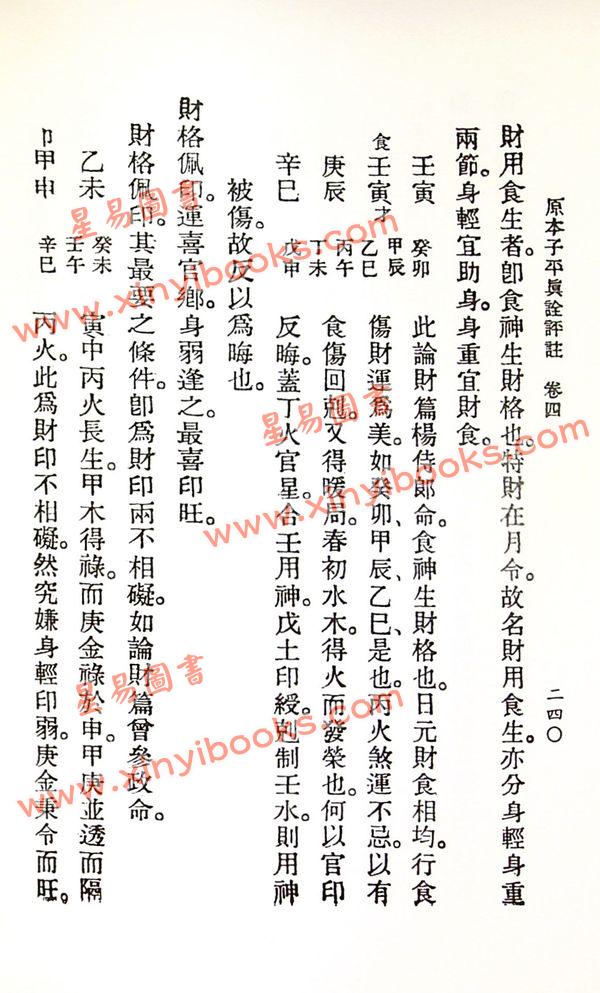 原本子平眞詮評註 卷四 二四〇
財用食生者。卽食神生財格也。特財在月令。故名財用食生。亦分身輕身重
兩節。身輕宜助身。身重宜財食。
壬寅 癸卯 此論財篇楊侍郎命。食神生財格也。日元財食相均。行食
食壬寅才 甲辰 乙巳 傷財運爲美。如癸卯、甲辰、乙巳、是也。丙火煞運不忌。以有
庚辰 丙午 丁未 食傷回剋。又得暖局。春初水木。得火而發榮也。何以官印
辛巳 戊申 反晦。蓋丁火官星。合壬用神。戊土印綬。剋制壬水。則用神
被傷。故反以爲晦也。
財格佩印。運喜官鄕。身弱逢之。最喜印旺。
財格佩印。其最要之條件。卽爲財印兩不相礙。如論財篇曾參政命。
乙未 癸未 寅中丙火長生。甲木得祿。而庚金祿於申。甲庚並透而隔
卩甲申 壬午 辛巳 丙火。此爲財印不相礙。然究嫌身輕印弱。庚金秉令而旺。
星易圖書
www.xinyibooks.com
星易圖書
www.xinyibooks.com
星易圖書
www.xinyibooks.com